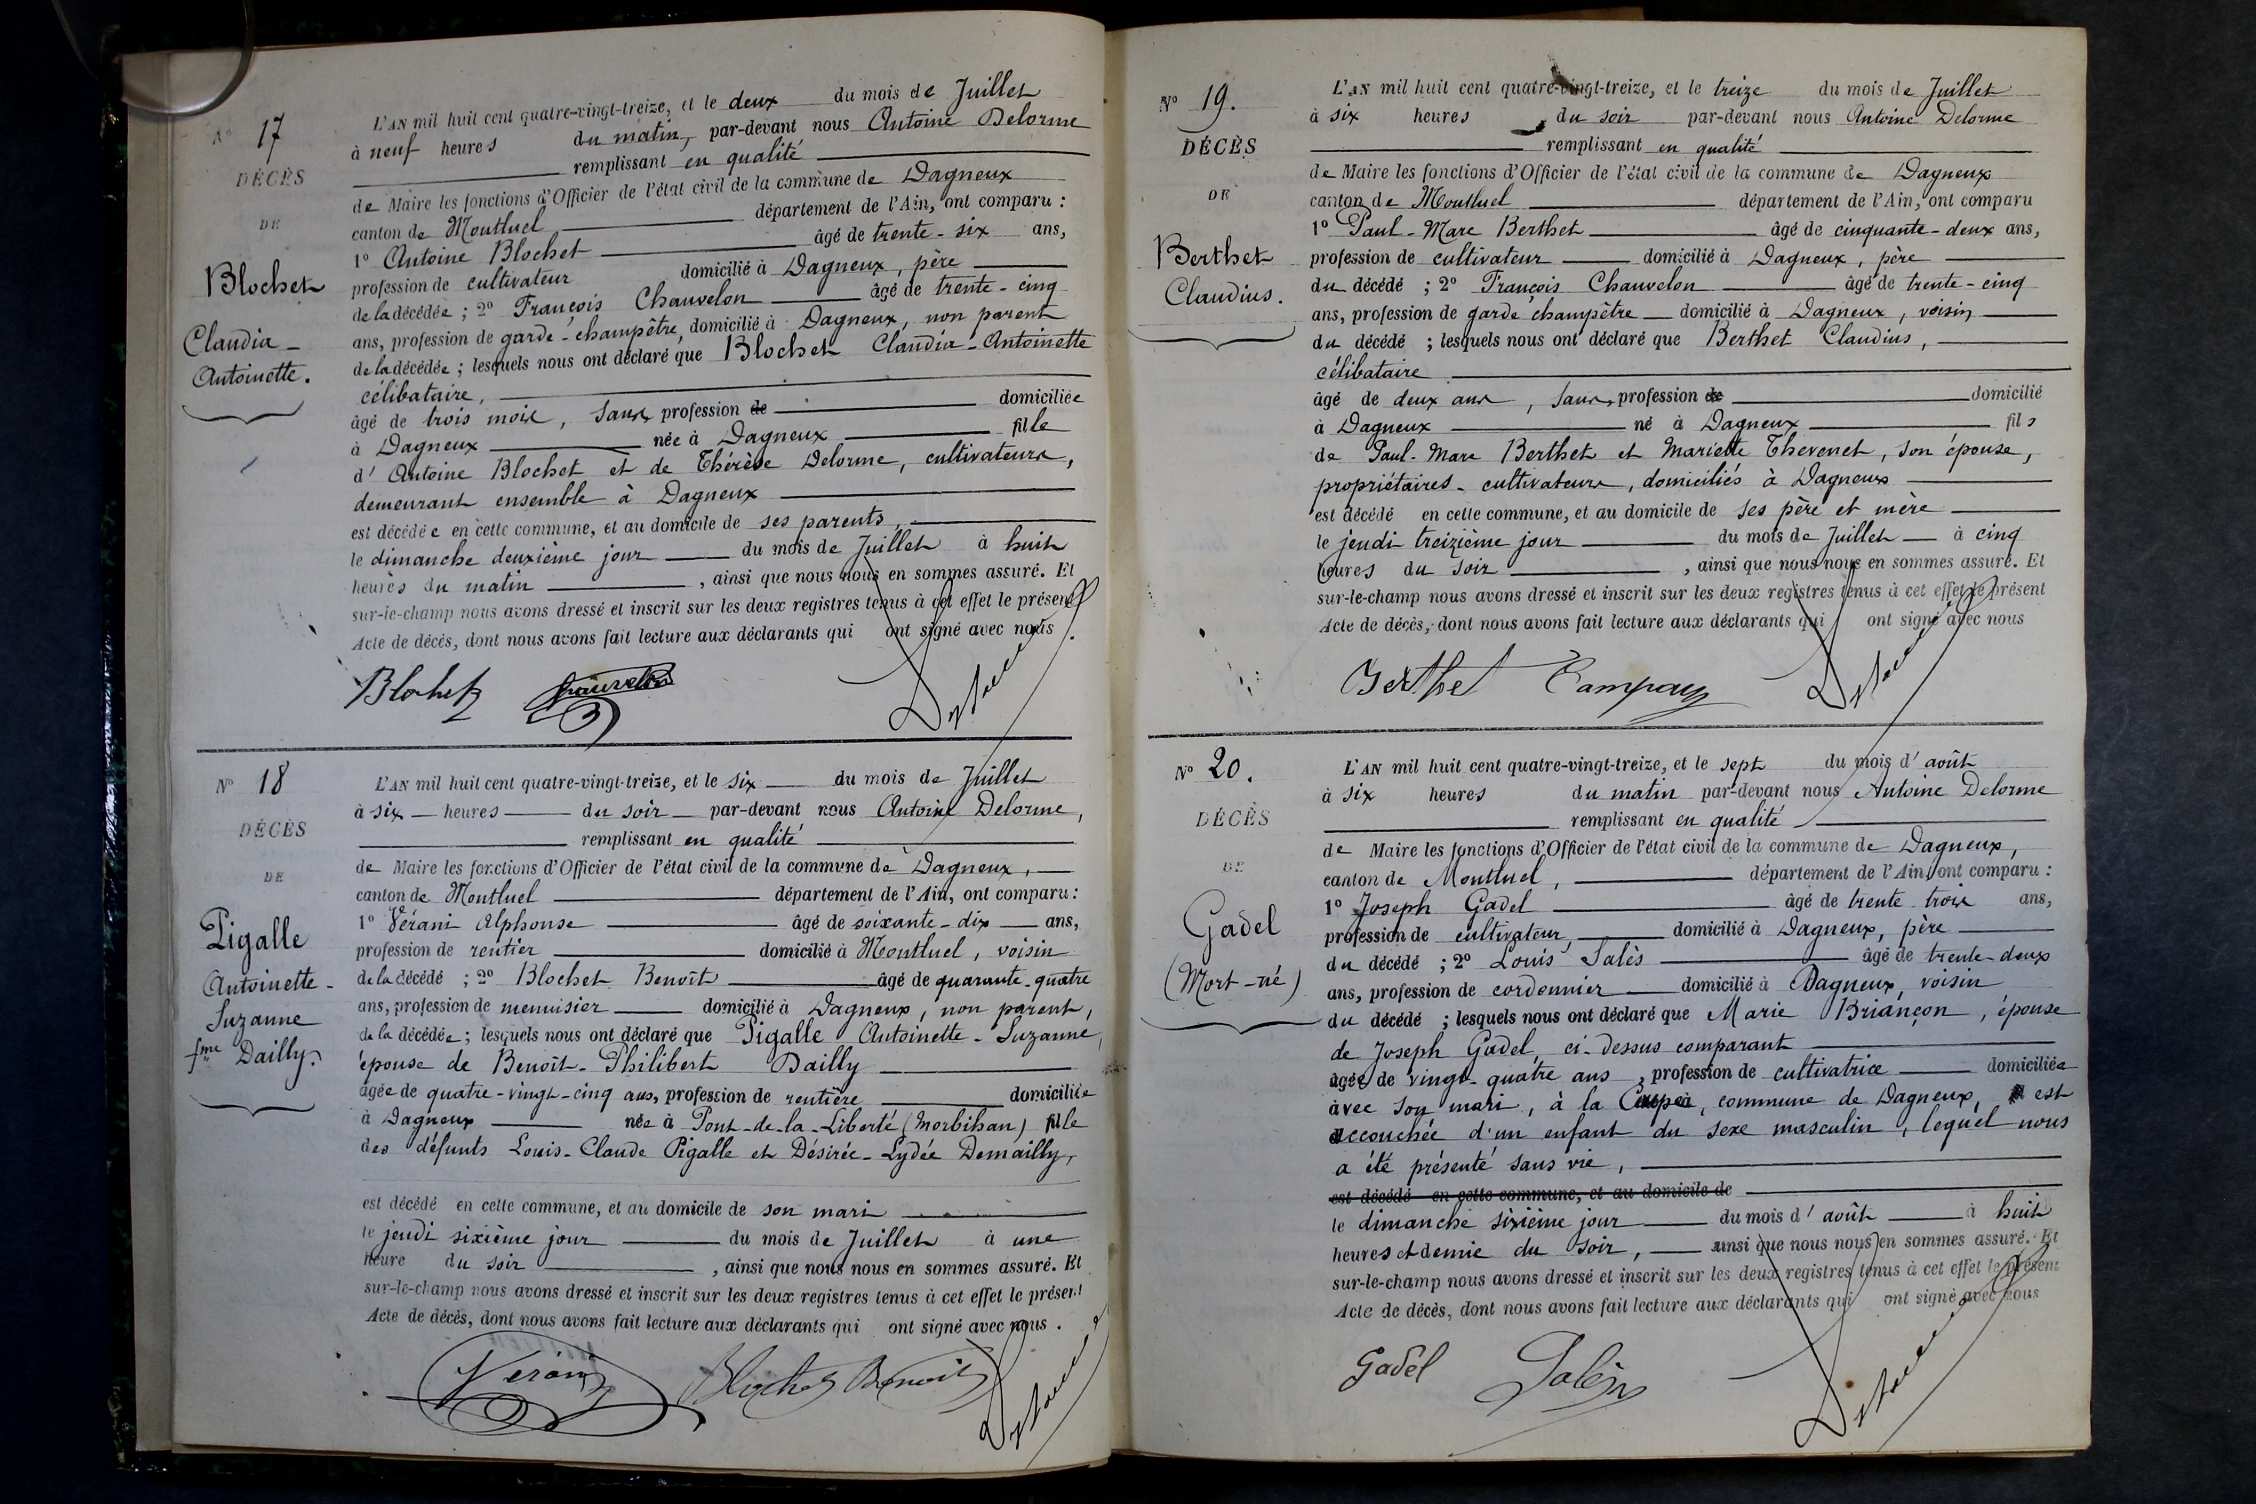 N° 17
DÉCÈS
DE
Blochet
Claudia-
Antoinette.
L'AN mil huit cent quatre-vingt-treize, et le deux du mois de Juillet
à neuf heures du matin, par-devant nous Antoine Delorme
remplissant en qualité
de Maire les fonctions d'Officier de l'état civil de la commune de Dagneux
canton de Montluel département de l'Ain, ont comparu :
1° Antoine Blochet âgé de trente-six ans,
profession de cultivateur domicilié à Dagneux, père
de la décédée ; 2° François Chauvelon âgé de trente-cinq
ans, profession de garde-champêtre, domicilié à Dagneux, non parent
de la décédée ; lesquels nous ont déclaré que Blochet Claudia-Antoinette
célibataire,
âgé de trois mois, sans profession de domiciliée
à Dagneux née à Dagneux fille
d'Antoine Blochet et de Thérèse Delorme, cultivateurs,
demeurant ensemble à Dagneux
est décédée en cette commune, et au domicile de ses parents,
le dimanche deuxième jour du mois de Juillet à huit
heures du matin, ainsi que nous nous en sommes assuré. Et
sur-le-champ nous avons dressé et inscrit sur les deux registres tenus à cet effet le présent
Acte de décès, dont nous avons fait lecture aux déclarants qui ont signé avec nous.
Blochet Chauvelon Delorme
N° 18
DÉCÈS
DE
Pigalle
Antoinette-
Suzanne
fme Dailly.
L'AN mil huit cent quatre-vingt-treize, et le six du mois de Juillet
à six heures du soir par-devant nous Antoine Delorme,
remplissant en qualité
de Maire les fonctions d'Officier de l'état civil de la commune de Dagneux,
canton de Montluel département de l'Ain, ont comparu :
1° Vérani Alphonse âgé de soixante-dix ans,
profession de rentier domicilié à Montluel, voisin
de la décédé ; 2° Blochet Benoît âgé de quarante-quatre
ans, profession de menuisier domicilié à Dagneux, non parent,
de la décédée ; lesquels nous ont déclaré que Pigalle Antoinette-Suzanne,
épouse de Benoît-Philibert Dailly
âgée de quatre-vingt-cinq ans, profession de rentière domiciliée
à Dagneux née à Pont-de-la-Liberté (Morbihan) fille
des défunts Louis-Claude Pigalle et Désirée-Lydée Demailly,
est décédé en cette commune, et au domicile de son mari
le jeudi sixième jour du mois de Juillet à une
heure du soir, ainsi que nous nous en sommes assuré. Et
sur-le-champ nous avons dressé et inscrit sur les deux registres tenus à cet effet le présent
Acte de décès, dont nous avons fait lecture aux déclarants qui ont signé avec nous.
Vérani Blochet Benoit Delorme
N° 19.
DÉCÈS
DE
Berthet
Claudius.
L'AN mil huit cent quatre-vingt-treize, et le treize du mois de Juillet
à six heures du soir par-devant nous Antoine Delorme
remplissant en qualité
de Maire les fonctions d'Officier de l'état civil de la commune de Dagneux
canton de Montluel département de l'Ain, ont comparu
1° Paul-Marc Berthet âgé de cinquante-deux ans,
profession de cultivateur domicilié à Dagneux, père
du décédé ; 2° François Chauvelon âgé de trente-cinq
ans, profession de garde champêtre domicilié à Dagneux, voisin
du décédé ; lesquels nous ont déclaré que Berthet Claudius,
célibataire
âgé de deux ans, sans profession de domicilié
à Dagneux né à Dagneux fils
de Paul-Marc Berthet et Mariette Thevenet, son épouse,
propriétaires-cultivateurs, domiciliés à Dagneux
est décédé en cette commune, et au domicile de ses père et mère
le jeudi treizième jour du mois de Juillet à cinq
heures du soir, ainsi que nous nous en sommes assuré. Et
sur-le-champ nous avons dressé et inscrit sur les deux registres tenus à cet effet le présent
Acte de décès, dont nous avons fait lecture aux déclarants qui ont signé avec nous
Berthet Delorme
N° 20.
DÉCÈS
DE
Gadel
(Mort-né)
L'AN mil huit cent quatre-vingt-treize, et le sept du mois d'août
à six heures du matin par-devant nous Antoine Delorme
remplissant en qualité
de Maire les fonctions d'Officier de l'état civil de la commune de Dagneux,
canton de Montluel, département de l'Ain, ont comparu :
1° Joseph Gadel âgé de trente trois ans,
profession de cultivateur, domicilié à Dagneux, père
du décédé ; 2° Louis Salès âgé de trente-deux
ans, profession de cordonnier domicilié à Dagneux, voisin
du décédé ; lesquels nous ont déclaré que Marie Briançon, épouse
de Joseph Gadel, ci-dessus comparant
âgée de vingt-quatre ans, profession de cultivatrice domiciliée
avec son mari, à la commune de Dagneux, est
accouchée d'un enfant du sexe masculin, lequel nous
a été présenté sans vie,
est décédé en cette commune, et au domicile de
le dimanche sixième jour du mois d'août à huit
heures et demie du soir, ainsi que nous nous en sommes assuré. Et
sur-le-champ nous avons dressé et inscrit sur les deux registres tenus à cet effet le présent
Acte de décès, dont nous avons fait lecture aux déclarants qui ont signé avec nous
Gadel Salès Delorme